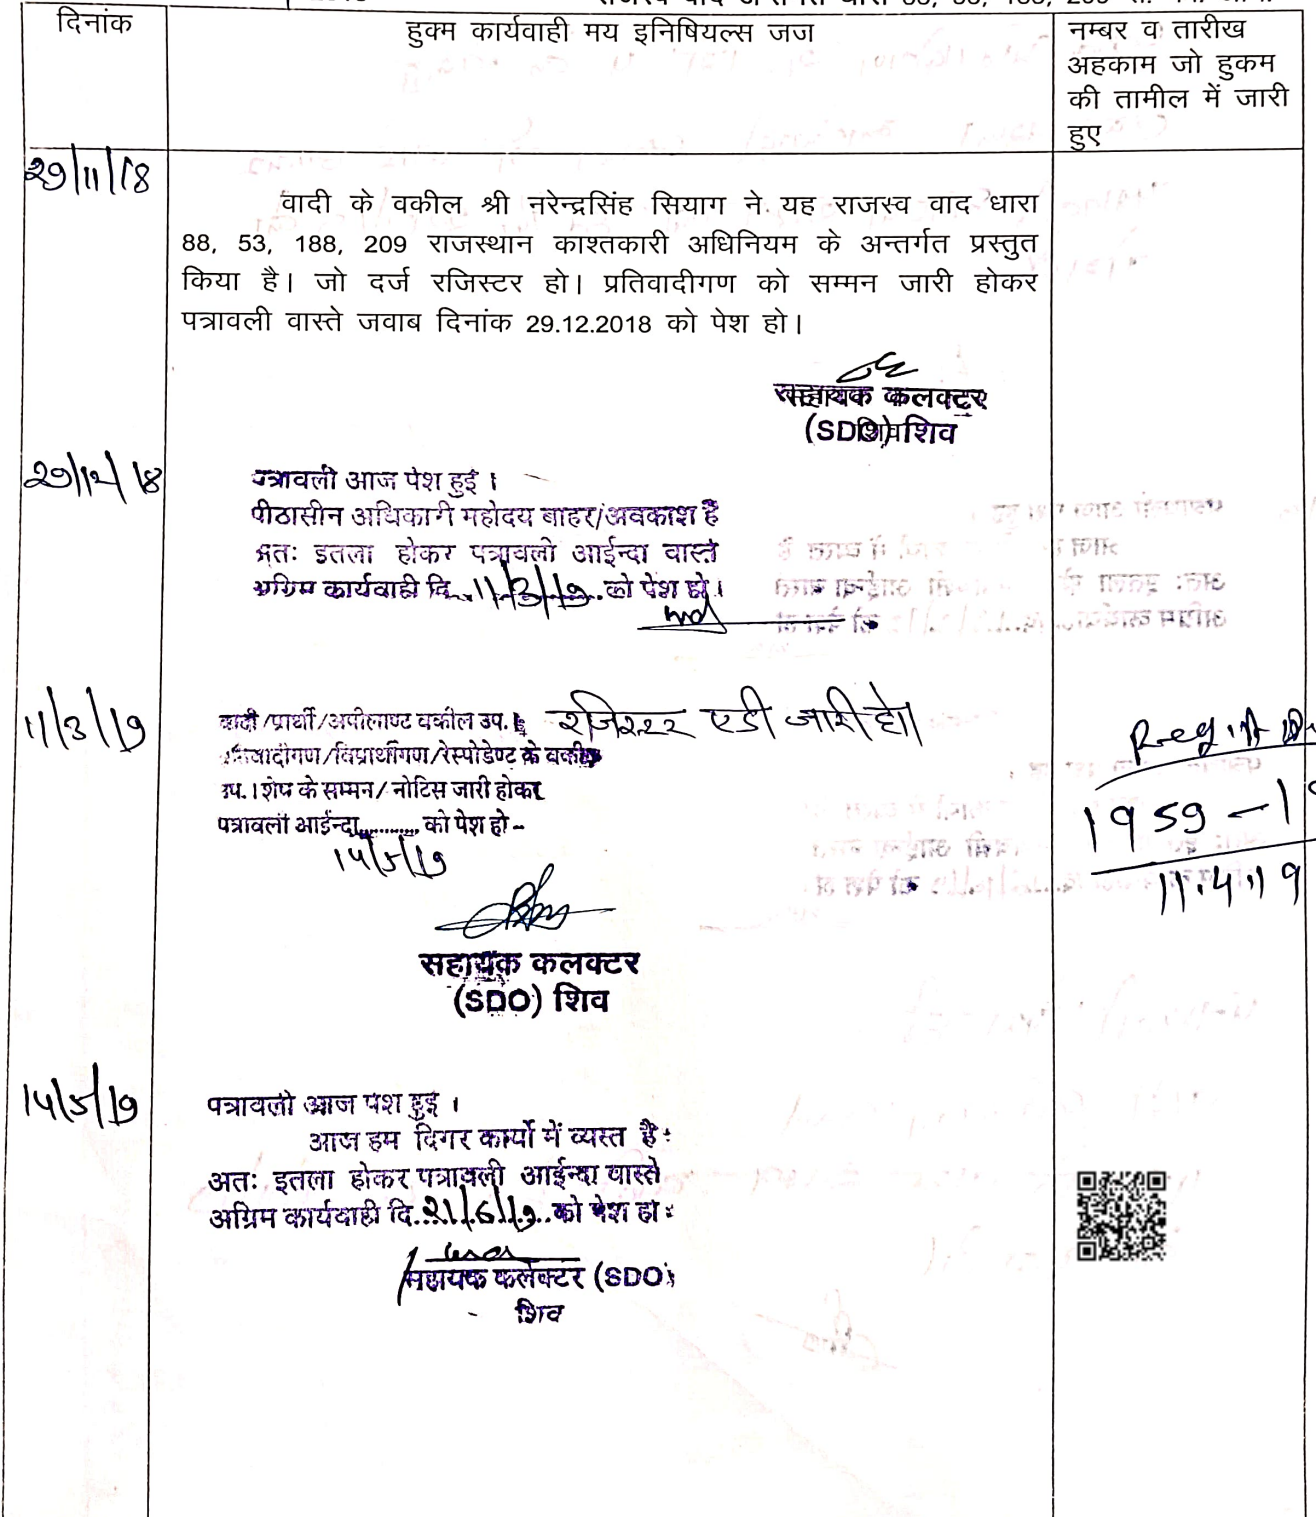 दिनांक
हुक्म कार्यवाही मय इनिषियल्स जज
नम्बर व तारीख
अहकाम जो हुकम
की तामील में जारी
हुए
29/11/18
वादी के वकील श्री नरेन्द्रसिंह सियाग ने यह राजस्व वाद धारा
88, 53, 188, 209 राजस्थान काश्तकारी अधिनियम के अन्तर्गत प्रस्तुत
किया है। जो दर्ज रजिस्टर हो। प्रतिवादीगण को सम्मन जारी होकर
पत्रावली वास्ते जवाब दिनांक 29.12.2018 को पेश हो।
सहायक कलक्टर
(SDO) शिव
29/12/18
पत्रावली आज पेश हुई ।
पीठासीन अधिकारी महोदय बाहर/अवकाश है
अतः इतला होकर पत्रावली आईन्दा वास्ते
अग्रिम कार्यवाही दि. 11/3/19 को पेश हो ।
11/3/19
वादी/प्रार्थी/अपीलाण्ट वकील उप. । रजिस्टर एडी जारी हो।
प्रतिवादीगण/विप्रार्थीगण/रेस्पोडेण्ट के वकील
उप. । शेष के सम्मन/नोटिस जारी होकर
पत्रावली आईन्दा........... को पेश हो -
14/5/19
सहायक कलक्टर
(SDO) शिव
1959 - 1
11.4.19
14/5/19
पत्रावली आज पेश हुई ।
आज हम दिगर कार्यो में व्यस्त है
अतः इतला होकर पत्रावली आईन्दा वास्ते
अग्रिम कार्यवाही दि. 21/6/19 को पेश हो
सहायक कलेक्टर (SDO)
शिव